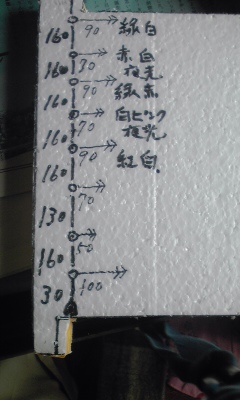 160 90 緑白
160 30 赤白
夜光
160 90 緑赤
160 70 白ピンク
夜光
160 90 紅白
70
130
50
160
100
30